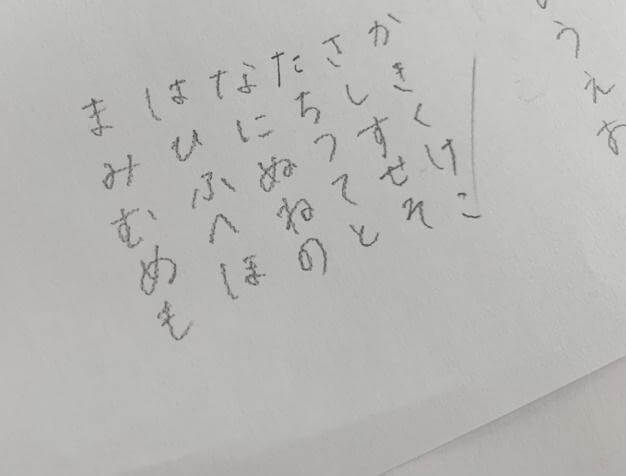 うえお
かきくけこ
さしすせそ
たちつてと
なにぬねの
はひふへほ
まみむめも